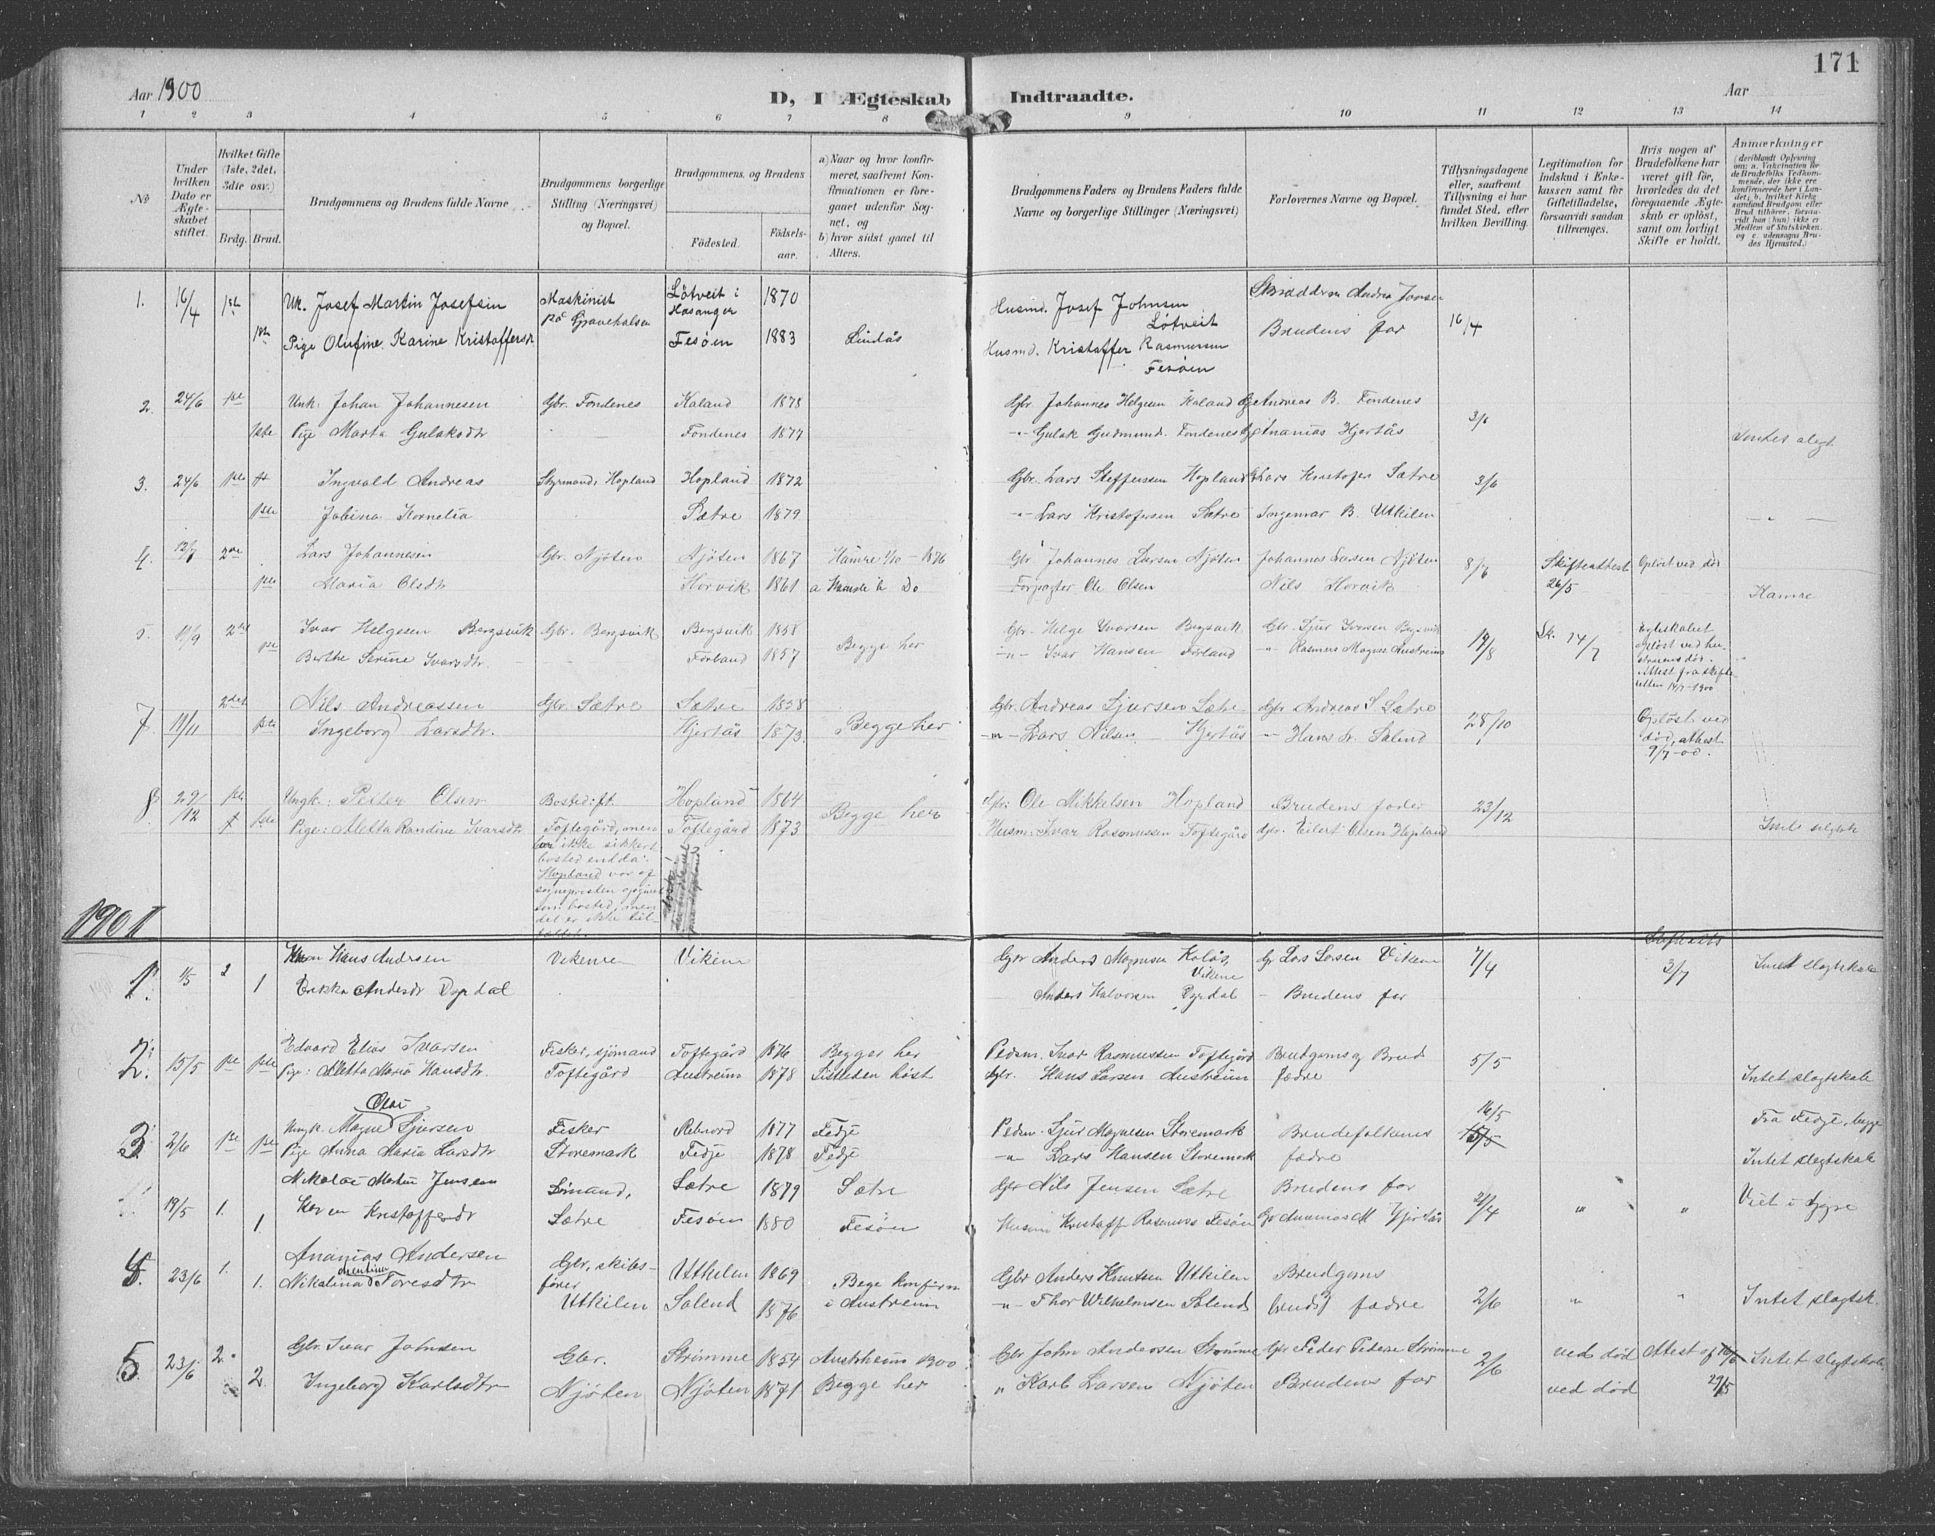 171
Aar 1900
D, I Ægteskab Indtraadte.
Aar
1 2 3 3 4 5 6 7 8 9 10 11 12 13 14
No
Under hvilken Dato er Ægteskabet stiftet.
Hvilket Gifte (1ste, 2det, 3die osv.)
Brdg. Brud.
Brudgommens og Brudens fulde Navne
Brudgommens borgerlige Stilling (Næringsvei) og Bopæl.
Brudgommens og Brudens
Fødested. Fødselsaar.
a) Naar og hvor konfirmeret, saafremt Konfirmationen er foregaaet udenfor Sognet, og
b) hvor sidst gaaet til Alters.
Brudgommens Faders og Brudens Faders fulde Navne og borgerlige Stillinger (Næringsvei)
Forlovernes Navne og Bopæl.
Tillysningsdagene eller, saafremt Tillysning ei har fundet Sted, efter hvilken Bevilling.
Legitimation for Indskud i Enkekassen samt for Giftetilladelse, forsaavidt saadan tiltrænges.
Hvis nogen af Brudefolkene har været gift før, hvorledes da det foregaaende Ægteskab er opløst, samt om lovligt Skifte er holdt.
Anmærkninger
1. 16/4 1ste Uk. Josef Martin Josefsen Maskinist på Gravehalsen Løtveit i Hosanger 1870 Husmd. Josef Johnsen Løtveit 16/4
Pige Olufine Karine Kristoffersd. Fesøen 1883 Lindås Husmd. Kristoffer Rasmussen Fesøen Brudens far
2. 24/6 1ste Unk. Johan Johannesen Gbr. Fondenes Kaland 1878 Gbr. Johannes Helgesen Kaland Andreas B. Fondenes 3/6
1ste Pige Marta Gulaksdtr Fondenes 1877 Gulak Gudmund. Fondenes Ananias Hjertås Intet slegt.
3. 24/6 Ingvald Andreas Styrmand. Hopland Hopland 1872 Gbr. Lars Steffensen Hopland Lars Kristofer Sætre 3/6
Jobina Kornelia Sætre 1879 Lars Kristofersen Sætre Ingemar B. Utkilen
4. 12/7 2de Lars Johannesen Gbr. Njøten Njøten 1867 Hamre 1/10 - 1876 Gbr Johannes Larsen Njøten Johannes Larsen Njøten 8/7 Skifteattest 26/5 Opløst ved død
Maria Olsdtr Horvik 1861 Do Forpagter Ole Olsen Nils Horvik Hamre
5. 11/9 2det Ivar Helgesen Bergsvik Gbr. Bergsvik Bergsvik 1858 Begge her Gbr. Helge Ivarsen Bergsvik Gbr. Sjur Ivarsen Bergsvik 19/8 Sk. 14/7 Egteskabet opløst ved hustruens død. Attest fra skifteretten 14/7-1900
Berthe Serine Ivarsdtr. Förland 1857 Ivar Hansen Förland Rasmus Magnes Austreim
7. 11/11 2det Nils Andreassen Gbr. Sætre Sætre 1858 Begge her Gbr. Andreas Sjursen Sætre Gbr Andreas S Sætre 28/10 Opløst ved død, attest 9/7-00.
Ingeborg Larsdtr. Hjertås 1873 Lars Nilsen Hjertås Hans L. Solend
8. 29/12 1ste Ungk: Peiter Olsen Bosted: ft. Toftegård, men her ikke sikkert bosted endda: Hopland var af sognepresten opgivet som bosted, men det er ikke tilfellet. Hopland 1864 Begge her Gbr: Ole Mikkelsen Hopland Brudens fader 23/12
1ste Pige: Aletta Randine Ivarsdtr Toftegård 1873 Husm: Ivar Rasmussen Toftegård Gbr. Eilert Olsen Hopland
1901
1. 1/5 2 Hans Andersen Vikenre Vikene Gbr Anders Magnusen Kolås, Vikene Gr Lars Larsen Vikene 7/4 3/7 Intet slegtskab
1 Erikka Andersdr Dyrdal Anders Halvorsen Dyrdal Brudens far
2. 15/5 1ste 1ste Edvard Elias Ivarsen Fisker, sjömand Toftegård Toftegård 1876 Begge her Pedm. Ivar Rasmussen Toftegård Brudgoms og Brud fædre 5/5
Pige: Aletta Maria Hansdtr. Austreim 1878 Sistleden høst Gbr. Hans Larsen Austreim Intet slegtskab
3 2/6 1ste 1ste Ungk. Magne Olai Sjursen Fisker Storemark Rebnord 1877 Fedje Pedm. Sjur Magnesen Storemark Brudefolkenes fædre 16/5 Fra Fedje, begge
Pige Anna Maria Larsdtr Fedje 1878 Fedje Lars Hansen Storemark Intet slegtskab
19/5 1. Nikolai Martin Jensen Sömand, Sætre Sætre 1879 Sætre Gbr Nils Jensen Sætre Brudens far 21/4 " " Viet i Lygre
1 Karen Kristoffersdr Fesøen 1880 Fesöen Husm Kristoff Rasmus Fesøen Gr Ananias M Hjertås
4. 23/6 1. Ananias Andersen Gbr, skibsfører Utkilen Utkilen 1869 Bege konfirm i Austreim Gbr Anders Knutsen Utkilen Brudgoms 2/6 " "
1. Nikolina Mentine Toresdtr Solend 1876 Thor Wilhelmsen Solend bruds fædre Intet slegtsk.
5 23/6 2. Gbr. Ivar Johnsen Gbr. Njöten Strömme 1854 Austrheim 1900 Gbr John Andersen Strömme Gbr Peder Pederse Strömme 2/6 ved död Attest af Intet slegtskab
2. Ingeborg Karlsdtr Njöten 1871 Begge her " Karl Larsen Njöten Brudens far ved död 29/5